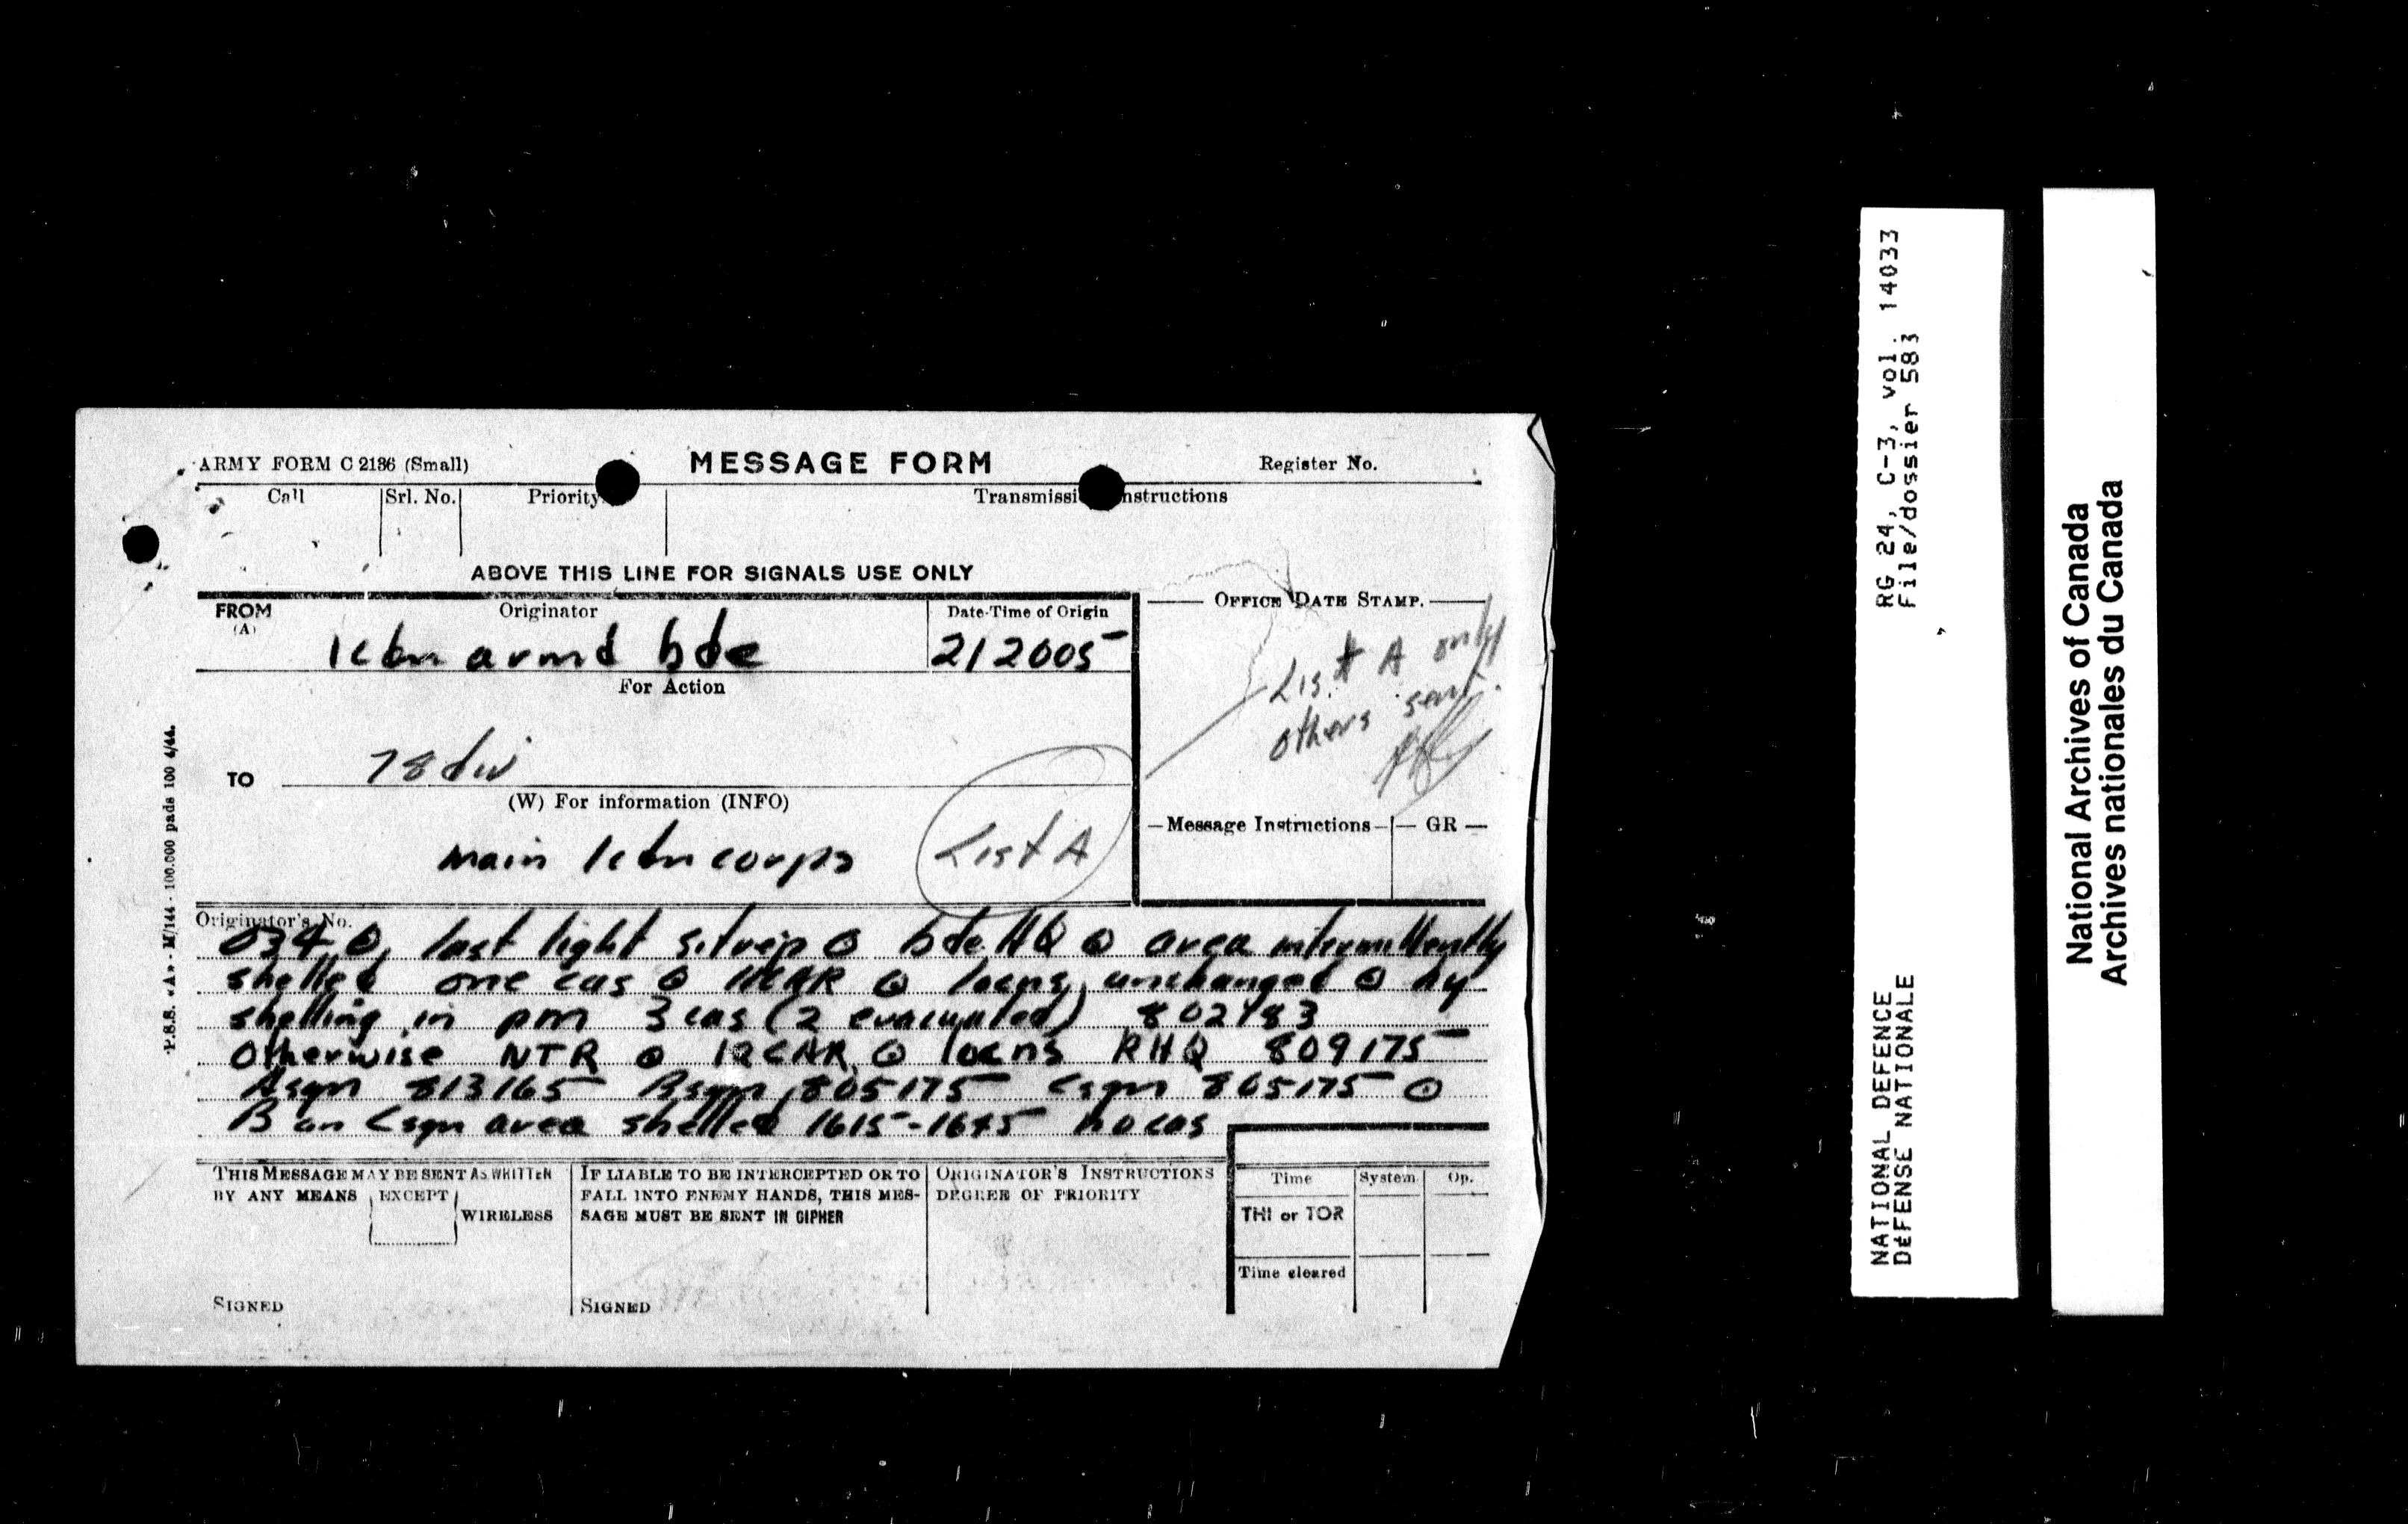 ARMY FORM C 2136 (Small)
MESSAGE FORM
Register No.
Call
Srl. No.
Priority
Transmissi nstructions
ABOVE THIS LINE FOR SIGNALS USE ONLY
FROM
(A)
Originator
Date-Time of Origin
OFFICE DATE STAMP.
1 cdn armd bde
212005
List A only
others sent.
For Action
TO
78 div
(W) For information (INFO)
main 1 cdn corps
List A
Message Instructions
GR
Originator's No.
O340 ⊙ last light sitrep ⊙ bde HQ ⊙ area intermittently
shelled one cas ⊙ 11CAR ⊙ locns unchanged ⊙ hy
shelling in pm 3 cas (2 evacuated) 802183
otherwise NTR ⊙ 12CAR ⊙ locns RHQ 809175
A sqn 813165 B sqn 805175 C sqn 805175 ⊙
B an C sqn area shelled 1615-1645 no cas
THIS MESSAGE MAY BE SENT AS WRITTEN
BY ANY MEANS EXCEPT
WIRELESS
SIGNED
IF LIABLE TO BE INTERCEPTED OR TO
FALL INTO ENEMY HANDS, THIS MES-
SAGE MUST BE SENT IN CIPHER
SIGNED
ORIGINATOR'S INSTRUCTIONS
DEGREE OF PRIORITY
Time
System
Op.
THI or TOR
Time cleared
P.S.S. «A» - M/144 - 100.000 pads 100 4/44.
RG 24, C-3, vol. 14033
File/dossier 583
NATIONAL DEFENCE
DÉFENSE NATIONALE
National Archives of Canada
Archives nationales du Canada